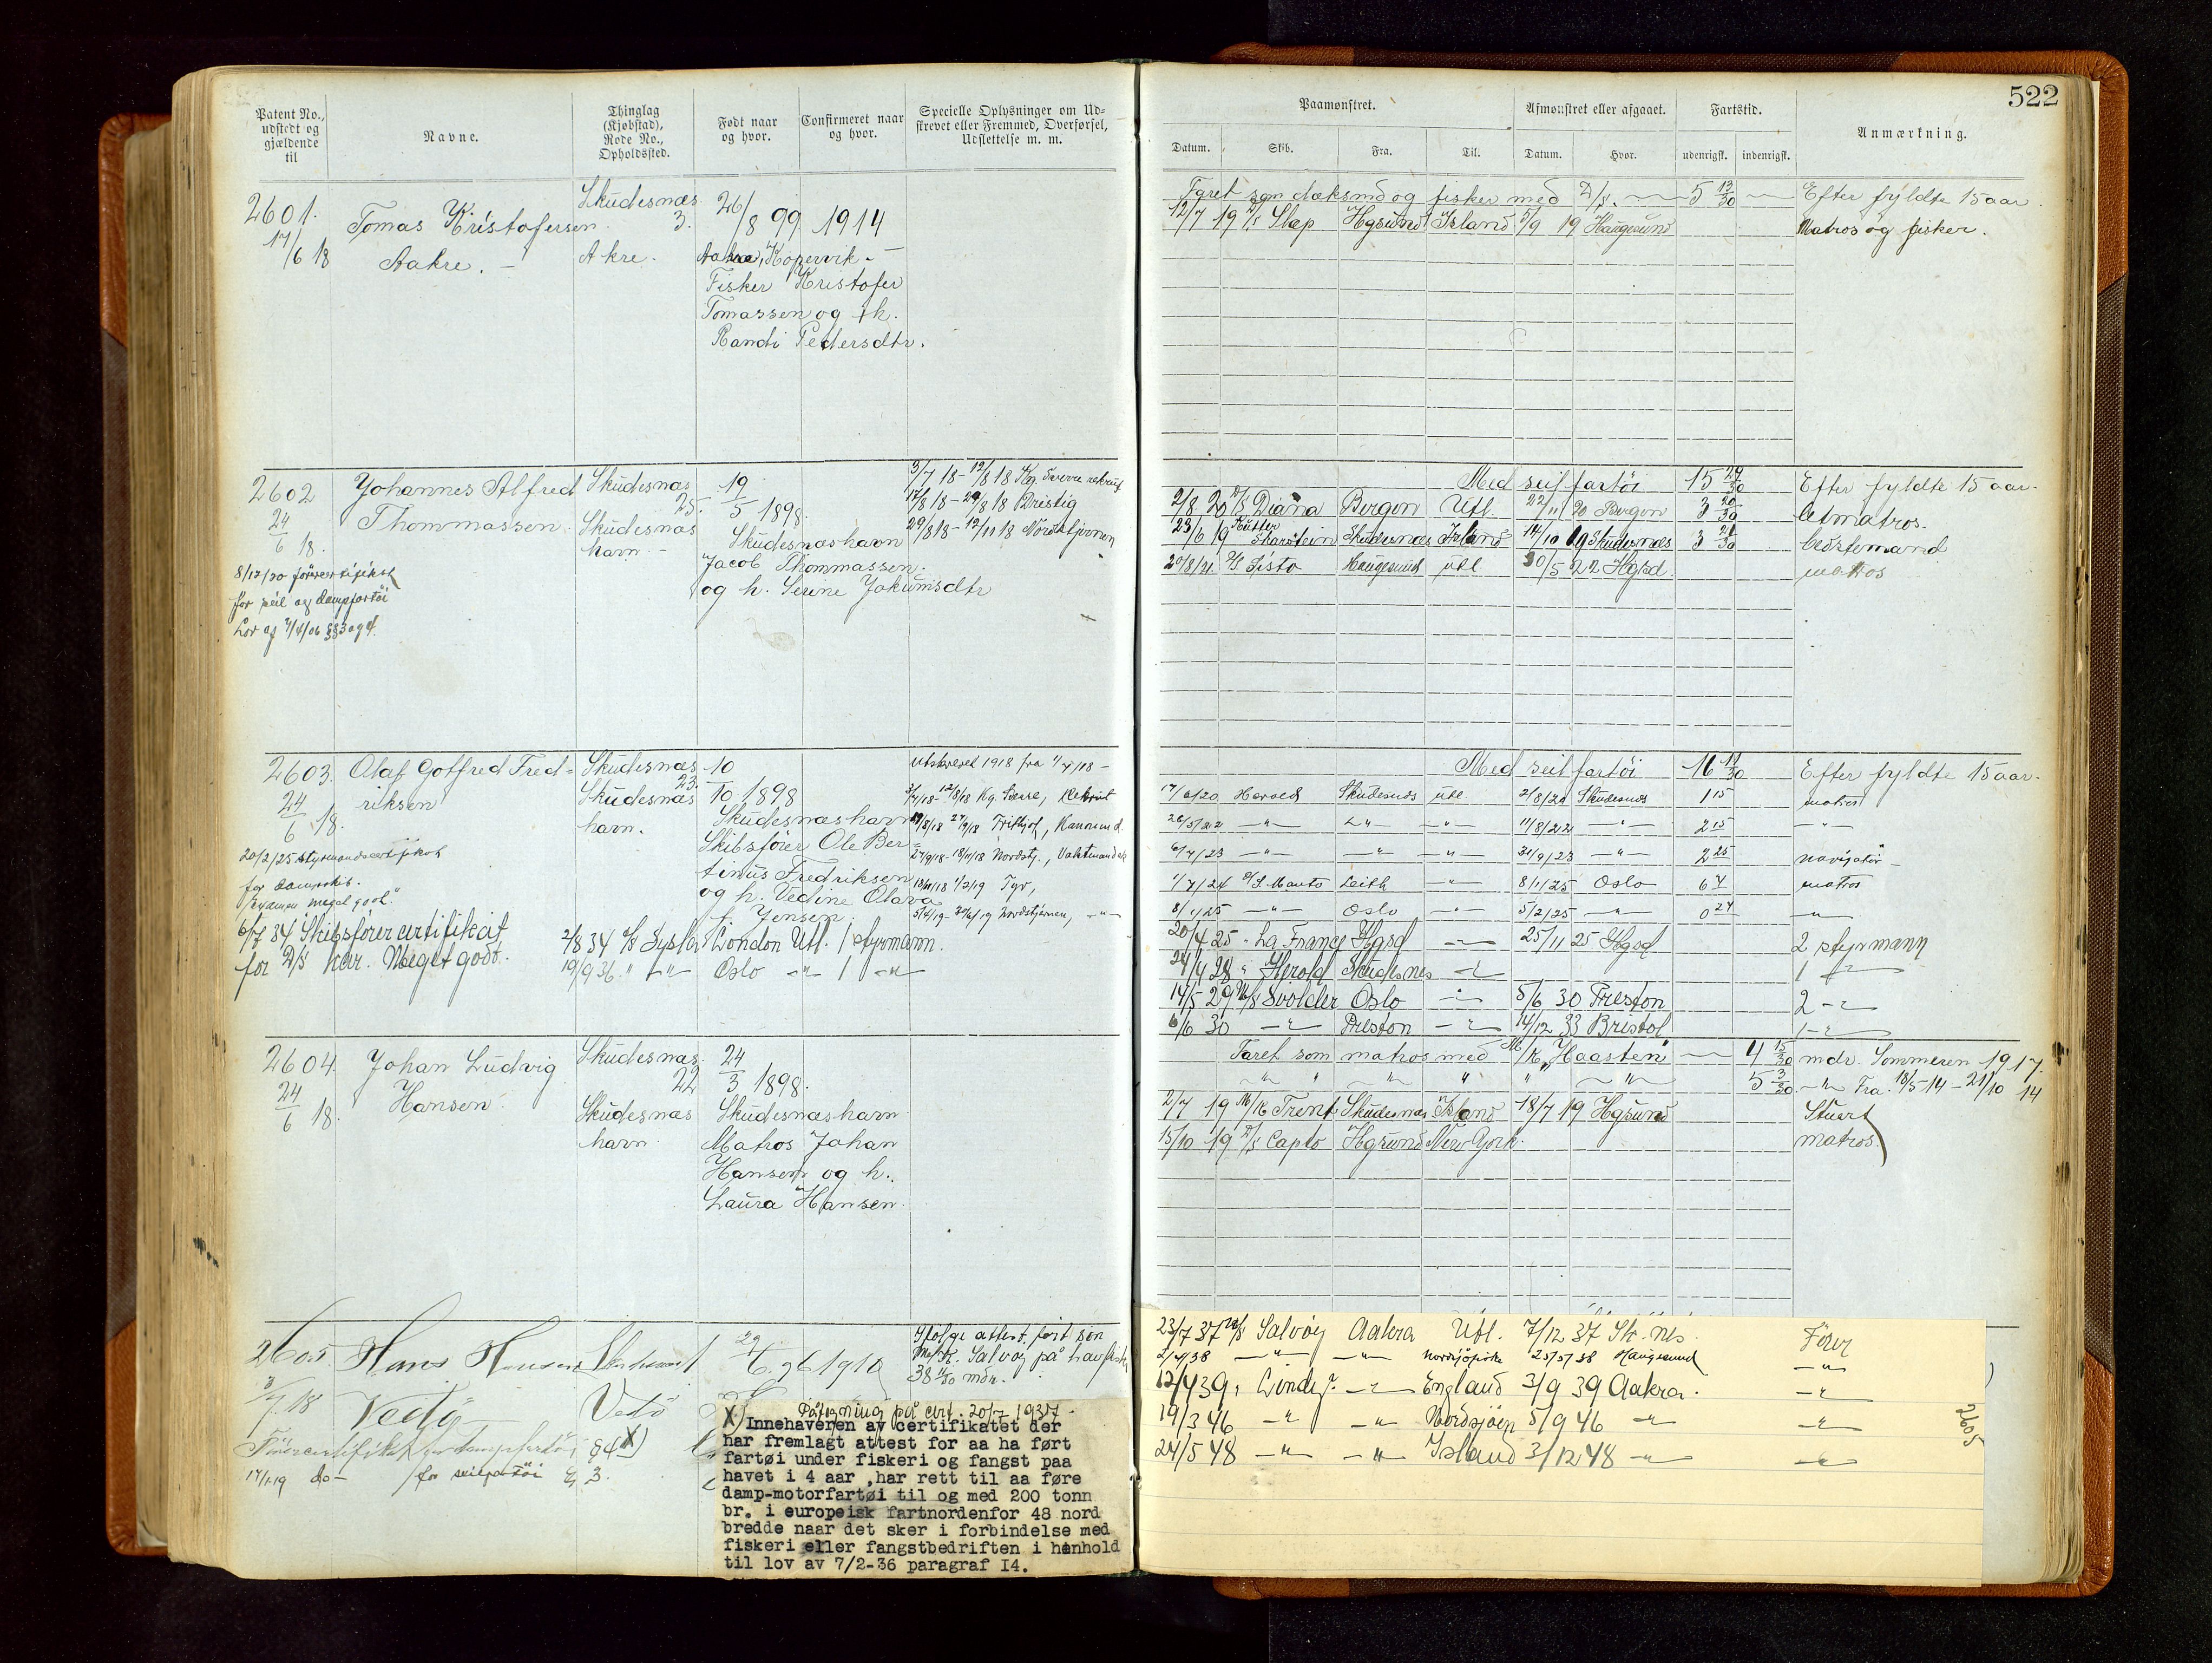 522
Patent No., udstedt og gjældende til
Navne.
Thinglag (Kjøbstad), Rode No., Opholdssted.
Født naar og hvor.
Confirmeret naar og hvor.
Specielle Oplysninger om Udskrevet eller Fremmed, Overførsel, Udslettelse m. m.
Paamønstret.
Afmønstret eller afgaaet.
Fartstid.
Anmærkning.
Datum.
Skib.
Fra.
Til.
Datum.
Hvor.
udenrigsk.
indenrigsk.
2601. Tomas Kristofersen Skudesnæs 26/8 99 1914
17/6 18 Aakre. 3. Akre. Aakra, Kopervik
Fisker Kristofer
Tomassen og h.
Randi Pedersdtr.
Faret som dæksmd og fisker med D/s. 5 13/30 Efter fyldte 15 aar.
12/7 19 Slæp Hgsund Island 5/9 19 Haugesund Matros og fisker.
2602 Johannes Alfred Skudesnæs 19/5 1898 3/7 18 - 12/8 18 Kg. Sverre rekrut
24/6 18. Thommassen. 25. Skudesnæs 17/8 18 - 29/8 18 Dristig
havn. Skudesnæshavn 29/8 18 - 12/11 18 Nordstjernen
8/12/20
for seil og dampfartøi Jacob Thommassen.
Lov af 7/4/06 §§3 og 4. og h. Serine Jokumsdtr
Med seilfartøi 15 29/30 Efter fyldte 15 aar.
2/8 20 D/s Diana Bergen Utl. 22/11 20 Bergen 3 20/30 letmatros.
23/6 19 Kutter Skarstein Skudesnæs Island 14/10 19 Skudesnæs 3 21/30 bedstemand
20/8/21 D/s Sisto Haugesund utl 30/5 22 Hgsd. matros
2603. Olaf Gotfred Fred= Skudesnæs 10/10 1898 Utskrevet 1918 fra 1/7/18 -
24/6 18. riksen 23. Skudesnæs 3/7/18 - 12/8/18 Kg. Sverre, Rekrut
havn. Skudesnæshavn Fritjof, Kanonmd.
20/2/25 styrmandscertifikat Skibsfører Ole Ber= 18/11/18 Nordstj.,
for dampskib. tinus Fredriksen
Examen meget godt. og h. Vedine Olava 1/2/19 Tyr,
f. Jensen. Nordstjernen,
6/7 34 Skibsførercertifikat 2/8 34 D/s Sysla London Utl. 1 styrmann.
for D/s kar. Meget godt. 19/9 36 " " Oslo " 1 "
Med seilfartøi 16 11/30 Efter fyldte 15 aar.
17/6/20 Herold Skudesnæs utl. 2/8/20 Skudesnæs 1 15 matros
26/5/22 " " " 11/8/22 " 2 15 "
6/7/23 " " " 31/9/23 " 2 25 navigatør
1/7/24 Leith " 8/1/25 Oslo 6 7 matros
8/1/25 " Oslo " 5/2/25 " 0 27 "
20/4 25 La France Hgsd " 25/11 25 Hgsd 2 styrmann
24/4 28 " Herold Skudesnes " 1 "
14/5 29 M/s Svolder Oslo " 5/6 30 Preston 2 "
6/6 30 " Preston " 14/12 33 Bristol 1 "
2604. Johan Ludvig Skudesnæs. 24/3 1898.
24/6 18. Hansen. 22
Skudesnæs Skudesnæshavn
havn. Matros Johan
Hansen og h.
Laura Hansen.
Faret som matros med M/k "Haasten" 4 15/30 mdr. Sommeren 1917.
" " " " " " 5 3/30 " Fra 18/5-14 - 21/10 14
2/7 19 M/k Trent Skudesnæs Island 18/7 19 Hgsund Stuert
15/10 19 D/s Capto Hgsund New York. matros.
2605 Hans Hansen 1910 Ifølge attest, ført som
3/7 18 Vedø Vedø M/k. Salvøy på havfiske
38 mdr.
Førercertifikat for dampfartøi §4 X)
17/1-19 do - for seilfartøi § 3
Påtegning på cert. 20/7 1937
X) Innehaveren av certifikatet der
har fremlagt attest for aa ha ført
fartøi under fiskeri og fangst paa
havet i 4 aar ,har rett til aa føre
damp-motorfartøi til og med 200 tonn
br. i europeisk fartnordenfor 48 nord
bredde naar det sker i forbindelse med
fiskeri eller fangstbedriften i henhold
til lov av 7/2-36 paragraf I4.
23/7 37 M/s Salvøy Aakra Utl. 7/12 37 Sk.nes. Fører
2/4/38 " " Nordsjøfiske 25/5/38 Haugesund "
12/4 39 " " England 3/9 39 Aakra. "
19/3 46 " " Nordsjøen 5/9 46 " "
24/5 48 " " Island 3/12 48 " "
2605